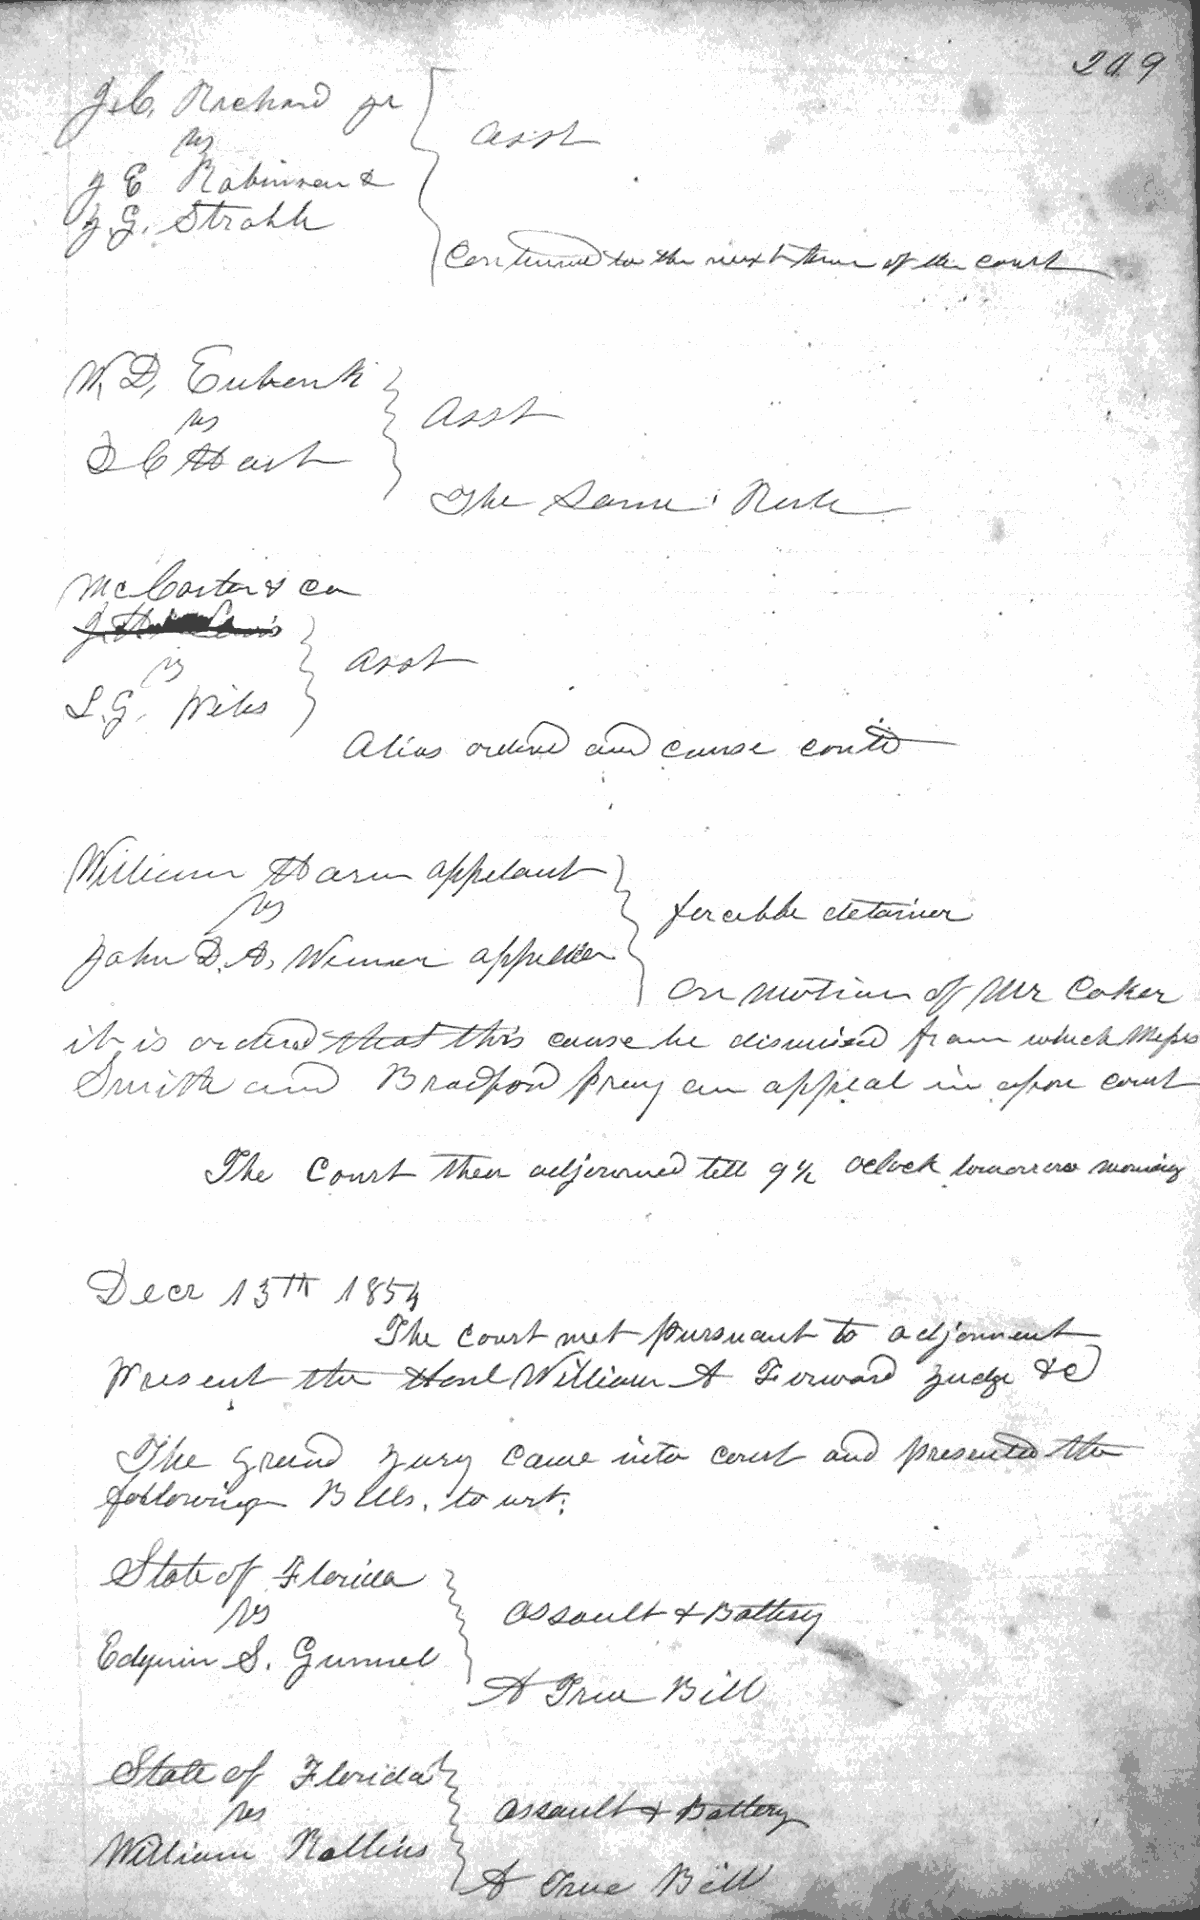 209
J. C. Richard jr
vs
J E Robinson &
J. G. Strahle
Asst
Continued to the next turm of the court
W, D, Eubank
vs
D C Hart
Asst
The Same Rule
McCarter & Co
vs
S. G. Wiles
Asst
Alias ordered and cause contd
William Harn appelant
vs
John D. A. Weimer appellee
forcible detainer
On motion of Mr Coker
it is ordered that this cause be dismised from which Messrs
Smith and Bradford pray an appeal in open court
The Court then adjourned till 9½ oclock tomorrow morning
Decr 13th 1854
The court met pursuant to adjornment
Present the Honl William A Forward Judge &c
The Grand Jury came into court and presented the
following Bills. to wit:
State of Florida
vs
S. Gunnel
Assault & Battery
A True Bill
State of Florida
vs
William Rollins
Assault & Battery
A True Bill